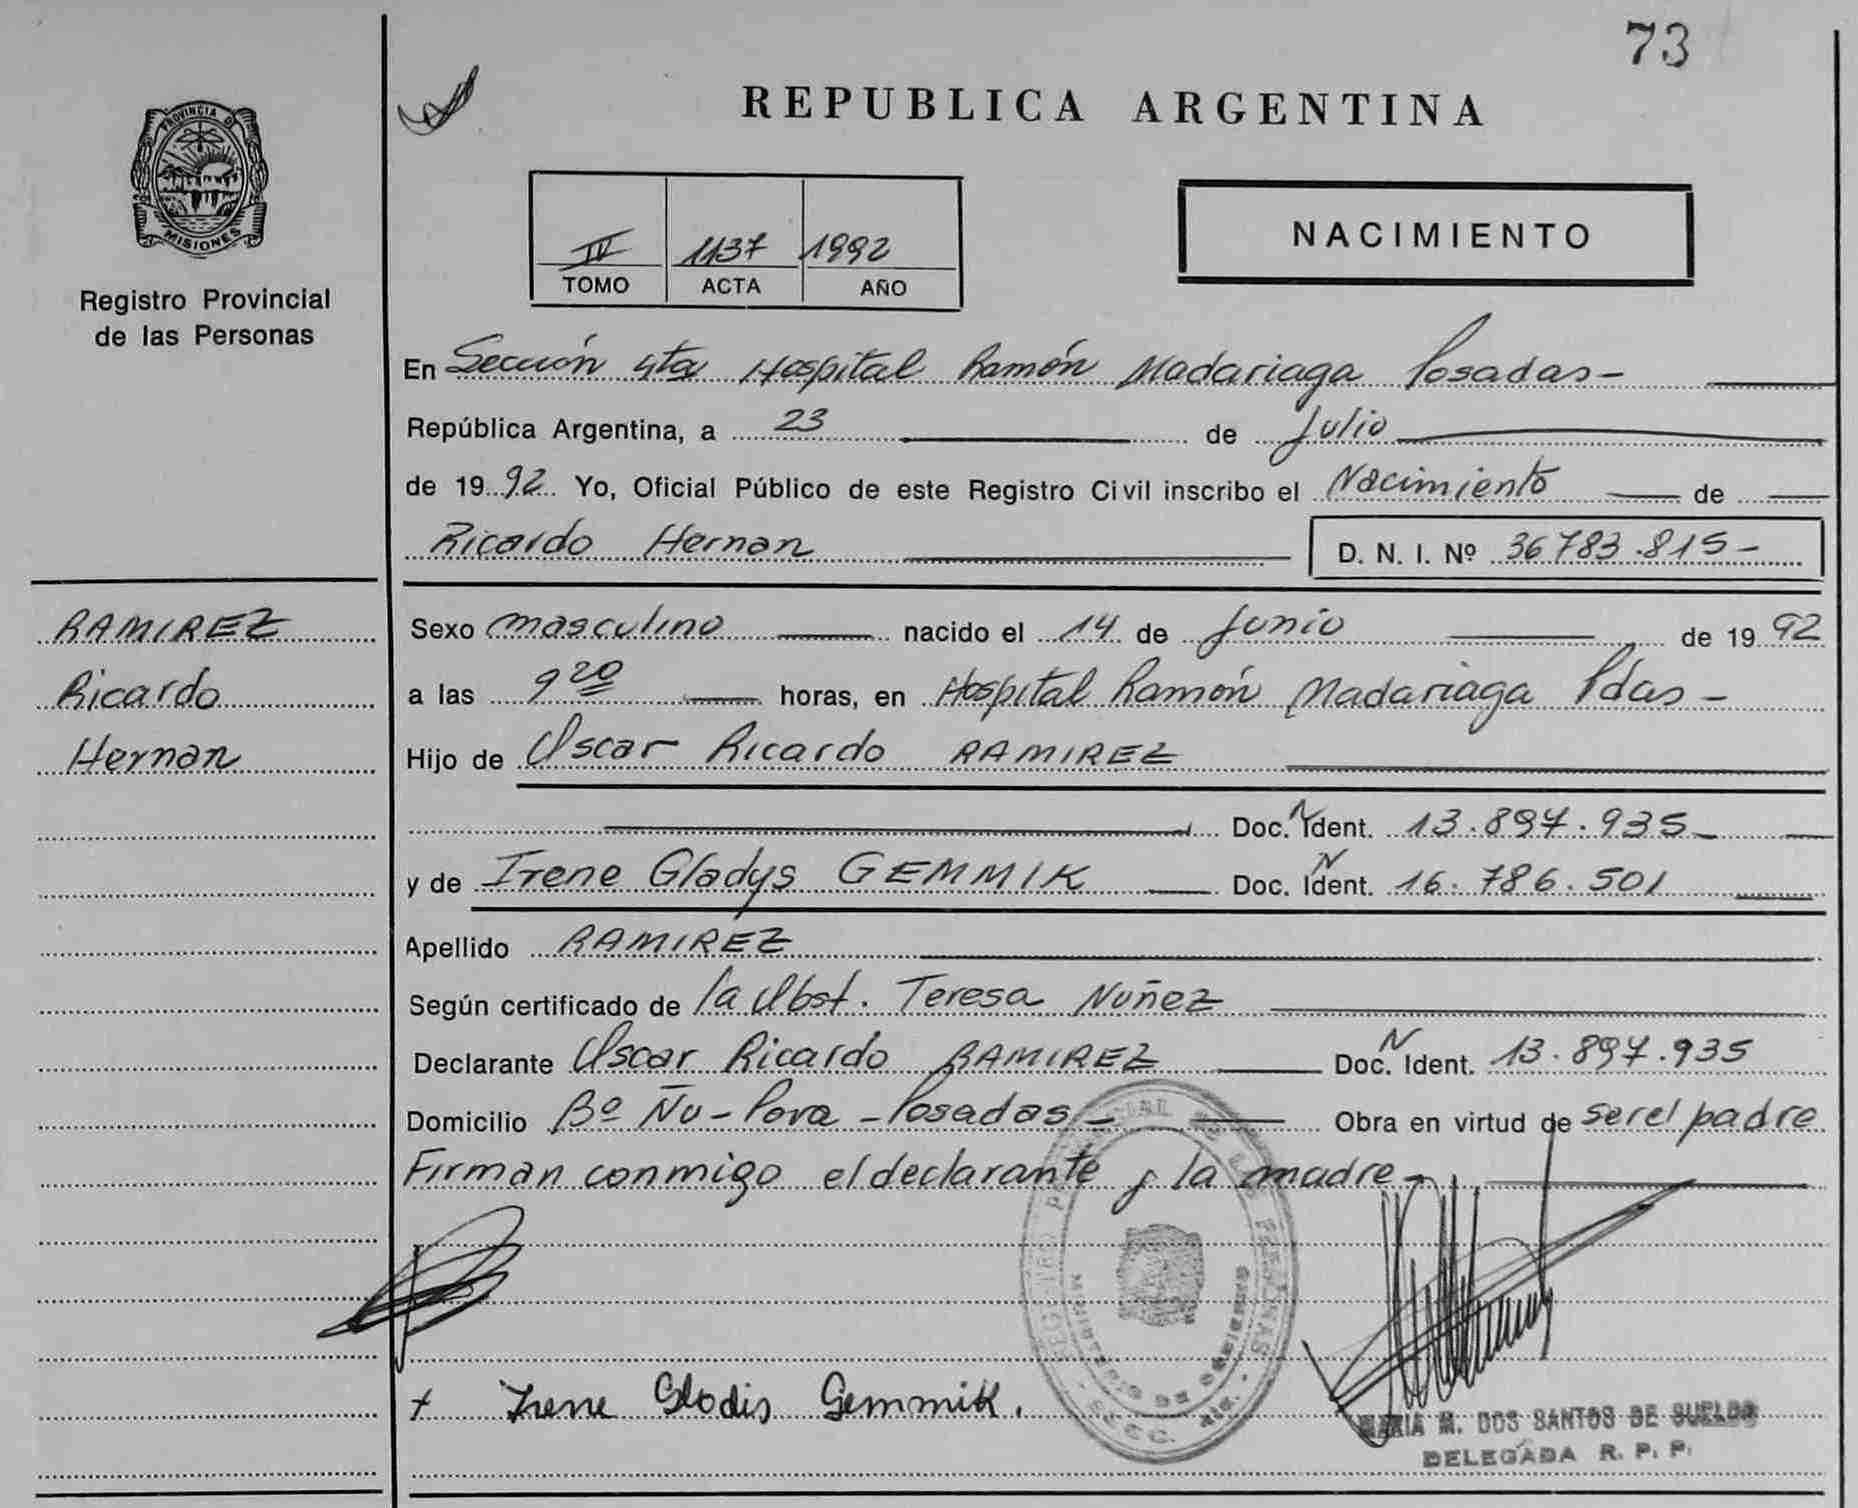 73
REPUBLICA ARGENTINA
PROVINCIA DE
MISIONES
Registro Provincial
de las Personas
IV 1137 1992
TOMO ACTA AÑO
NACIMIENTO
En Sección 4ta Hospital Ramón Madariaga Posadas-
República Argentina, a 23 de Julio
de 1992 Yo, Oficial Público de este Registro Civil inscribo el Nacimiento de
Ricardo Hernan D. N. I. Nº 36783.815-
RAMIREZ
Ricardo
Hernan
Sexo masculino nacido el 14 de Junio de 1992
a las 9 20 horas, en Hospital Ramón Madariaga Pdas-
Hijo de Oscar Ricardo RAMIREZ
Doc. N Ident. 13.897.935-
y de Irene Gladys GEMMIK Doc. N Ident. 16.786.501
Apellido RAMIREZ
Según certificado de la Obst. Teresa Nuñez
Declarante Oscar Ricardo RAMIREZ Doc. N Ident. 13.897.935
Domicilio Bº Ñu-Pora-Posadas- Obra en virtud de ser el padre
Firman conmigo el declarante y la madre-
x Irene Glodis Gemmik.
MARIA M. DOS SANTOS DE SUELDO
DELEGADA R. P. P.